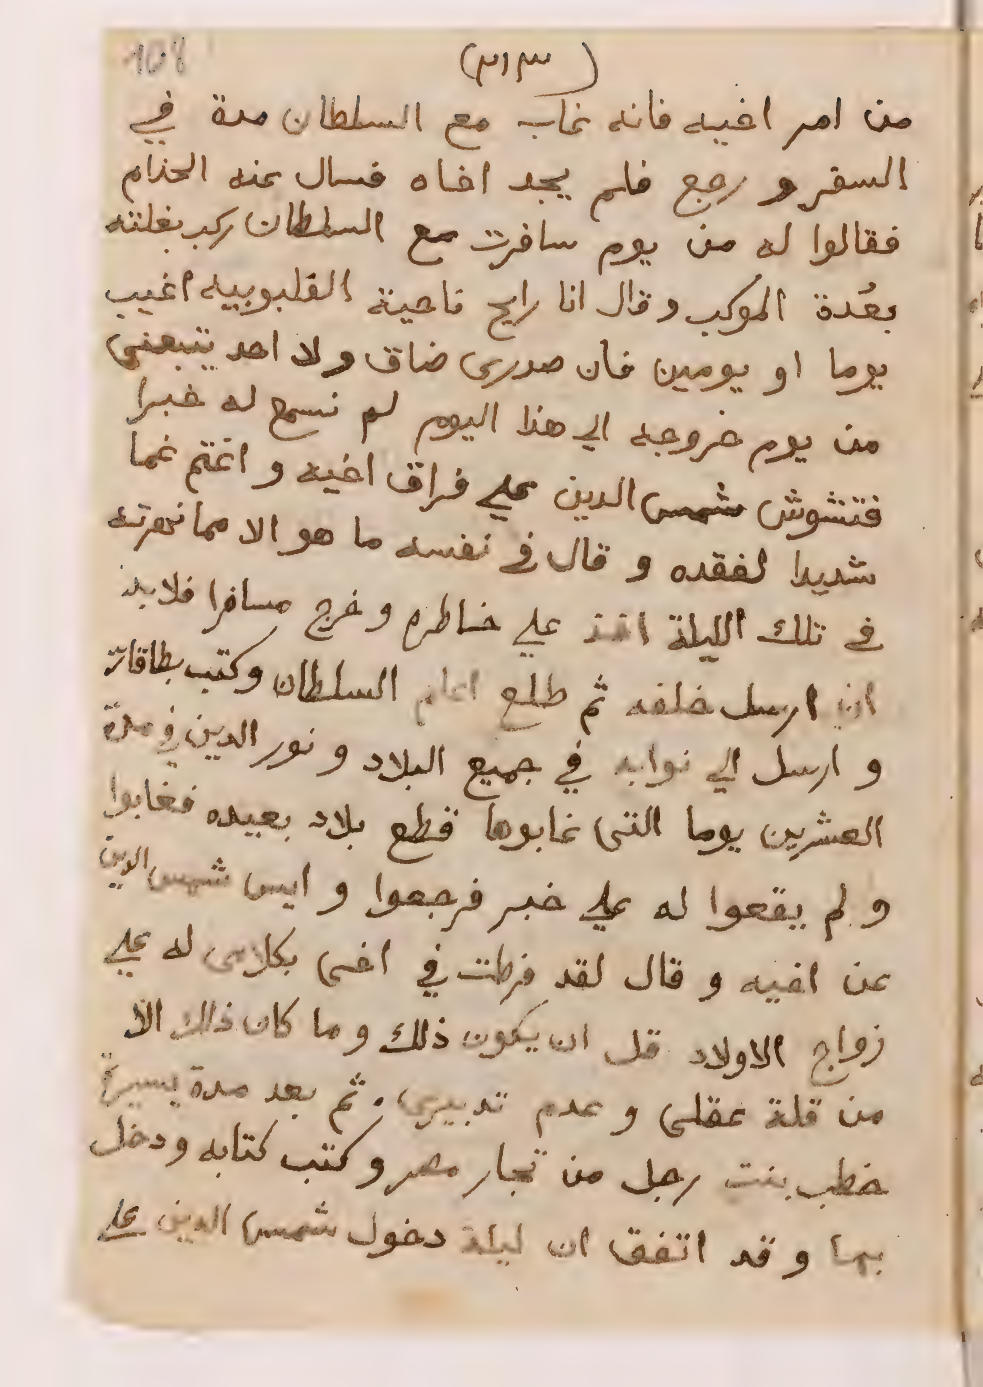 108
(٣١٣)
من امر اخيه فانه غاب مع السلطان مدة في
السفر و رجع فلم يجد اخاه فسال عنه الخدام
فقالوا له من يوم سافرت مع السلطان ركب بغلته
بعُدة الموكب و قال انا رايح ناحية القليوبيه اغيب
يوما او يومين فان صدرى ضاق و لا احد يتبعنى
من يوم خروجه الي هذا اليوم لم نسمع له خبرا
فتشوش شمس الدين علي فراق اخيه و اغتم غما
شديدا لفقده و قال في نفسه ما هو الا مما نهرته
في تلك الليلة اخذ علي خاطره و خرج مسافرا فلا بد
ان ارسل خلفه ثم طلع اعلم السلطان و كتب بطاقات
و ارسل الي نوابه في جميع البلاد و نور الدين في مدة
العشرين يوما التى غابوها قطع بلاد بعيده فغابوا
و لم يقعوا له علي خبر فرجعوا و ايس شمس الدين
عن اخيه و قال لقد فرطت في اخى بكلامى له علي
زواج الاولاد قل ان يكون ذلك و ما كان ذلك الا
من قلة عقلى و عدم تدبيرى. ثم بعد مدة يسيرة
خطب بنت رجل من تجار مصر و كتب كتابه و دخل
بها و قد اتفق ان ليلة دخول شمس الدين على